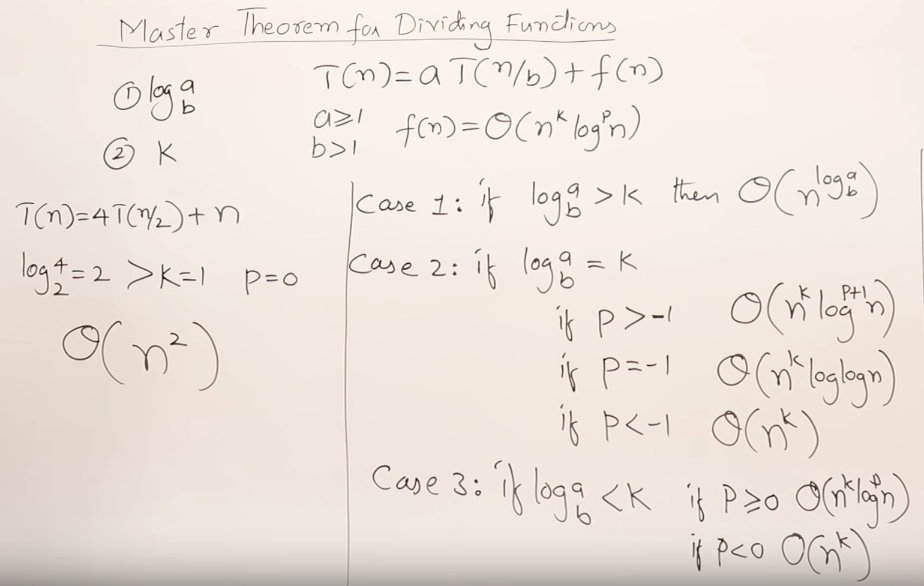 Master Theorem for Dividing Functions
① log_b^a
② K
T(n)=aT(n/b)+f(n)
a≥1
b>1
f(n)=O(n^k log^p n)
T(n)=4T(n/2)+n
log_2^4=2 >K=1 P=0
O(n^2)
Case 1: if log_b^a >K then O(n^(log_b^a))
Case 2: if log_b^a = K
if P>-1 O(n^k log^(P+1) n)
if P=-1 O(n^k loglogn)
if P<-1 O(n^k)
Case 3: if log_b^a <K if P≥0 O(n^k log^p n)
if P<0 O(n^k)